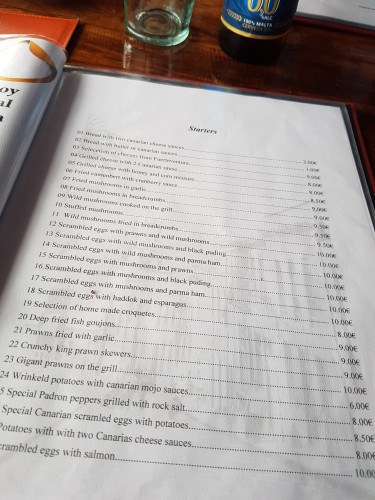 oy
al
a
0,0
SALE
100% MALTA
Starters
01 Bread with two canarian cheese sauces 2.00€
02 Bread with butter or canarian sauces 1.00€
03 Selection of cheeses from Fuerteventura 9.00€
04 Grilled cheese with 2 Canarian sauce 8.00€
05 Grilled cheese with honey and corn mixture 9.00€
06 Fried camembert with cranberry sauce 8.50€
07 Fried mushrooms in garlic 9.00€
08 Fried mushrooms in breadcrumbs 9.00€
09 Wild mushrooms cooked on the grill 9.50€
10 Stuffed mushrooms 9.50€
11 Wild mushrooms fried in breadcrumbs 9.50€
12 Scrambled eggs with prawns and wild mushrooms 10.00€
13 Scrambled eggs with wild mushrooms and black puding 10.00€
14 Scrambled eggs with wild mushrooms and parma ham 10.00€
15 Scrambled eggs with mushrooms and prawns 10.00€
16 Scrambled eggs with mushrooms and black puding 10.00€
17 Scrambled eggs with mushrooms and parma ham 10.00€
18 Scrambled eggs with haddok and esparagus 10.00€
19 Selection of home made croquetes 8.00€
20 Deep fried fish goujons 9.00€
21 Prawns fried with garlic 9.00€
22 Crunchy king prawn skewers 9.00€
23 Gigant prawns on the grill 10.00€
24 Wrinkeld potatoes with canarian mojo sauces 6.00€
5 Special Padron peppers grilled with rock salt 8.00€
Special Canarian scramled eggs with potatoes 8.50€
Potatoes with with two Canarias cheese sauces 8.00€
crambled eggs with salmon 10.00€